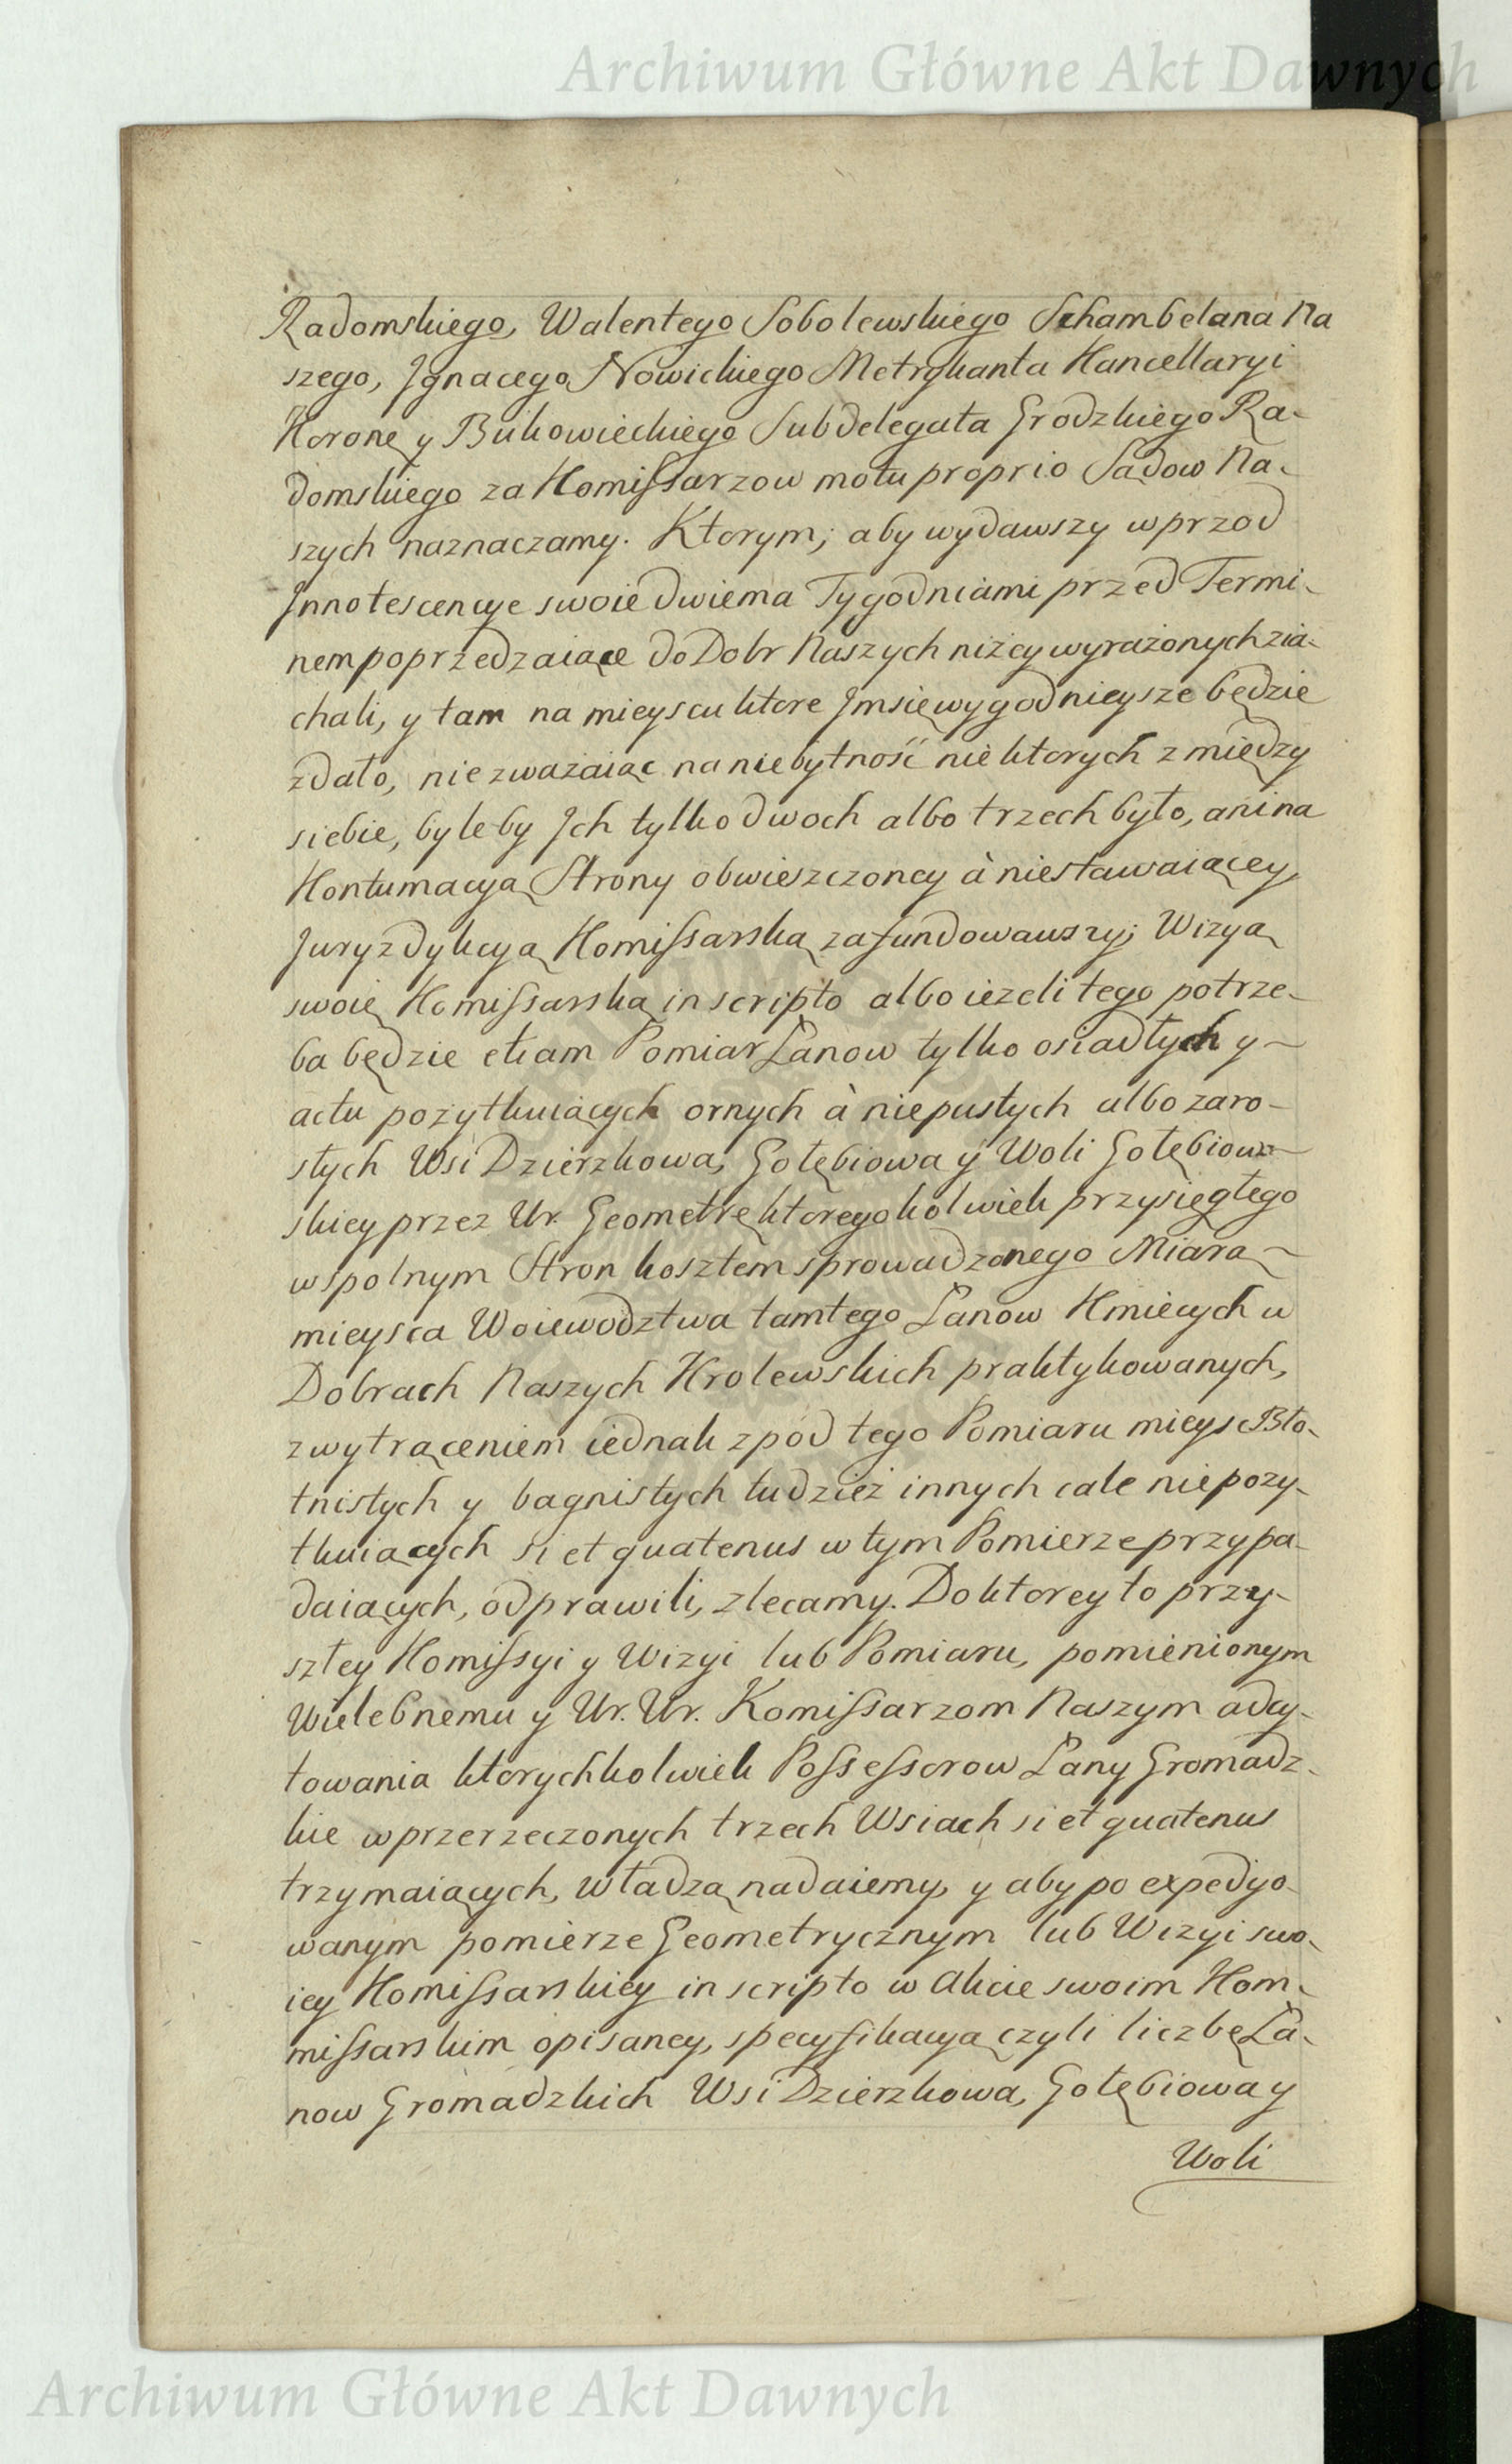 Archiwum Główne Akt Dawnych
Radomskiego, Walentego Sobolewskiego Schambelana Na
szego, Jgnacego Nowickiego Metrykanta Kancellaryi
Koronę y Bukowieckiego Subdelegata Grodzkiego Ra-
domskiego za Komissarzow motu proprio Sądow Na-
szych naznaczamy. Ktorym; aby wydawszy wprzod
Jnnotescencye swoie dwiema Tygodniami przed Termi-
nem poprzedzaiące do Dobr Naszych niżey wyrażonych zia-
chali, y tam na mieyscu ktore Jm się wygodnieysze będzie
zdało, nie zważaiąc na niebytność niektorych z między
siebie, byleby Jch tylko dwoch albo trzech było, ani na
Kontumacyą Strony obwieszczoney à niestawaiącey,
Juryzdykcyą Komissarską zafundowawszy; Wizyą
swoię Komissarską in scripto albo ieżeli tego potrze-
ba będzie etiam Pomiar Łanow tylko osiadłych y-
actu pożytkuiących ornych à niepustych albo zaro-
słych Wsi Dzierzkowa, Gołębiowa y Woli Gołębiow-
skiey przez Ur. Geometrę ktoregokolwiek przysięgłego
wspolnym Stron kosztem sprowadzonego Miarą-
mieysca Woiewodztwa tamtego Łanow Kmiecych w
Dobrach Naszych Krolewskich praktykowanych,
z wytrąceniem iednak zpód tego Pomiaru mieysc Bło-
tnistych y bagnistych tudzież innych cale niepoży-
tkuiących si et quatenus w tym Pomierze przypa-
daiących, odprawili, zlecamy. Do ktorey to przy-
szłey Komissyi y Wizyi lub Pomiaru, pomienionym
Wielebnemu y Ur. Ur. Komissarzom Naszym adcy-
towania ktorychkolwiek Possessorow Łany Gromadz-
kie w przerzeczonych trzech Wsiach si et quatenus
trzymaiących, władzą nadaiemy, y aby po expedyo-
wanym pomierze Geometrycznym lub Wizyi swo-
iey Komissarskiey in scripto w Akcie swoim Kom-
missarskim opisaney, specyfikacyą czyli liczbę Ła-
now Gromadzkich Wsi Dzierzkowa, Gołębiowa y
Woli
Archiwum Główne Akt Dawnych